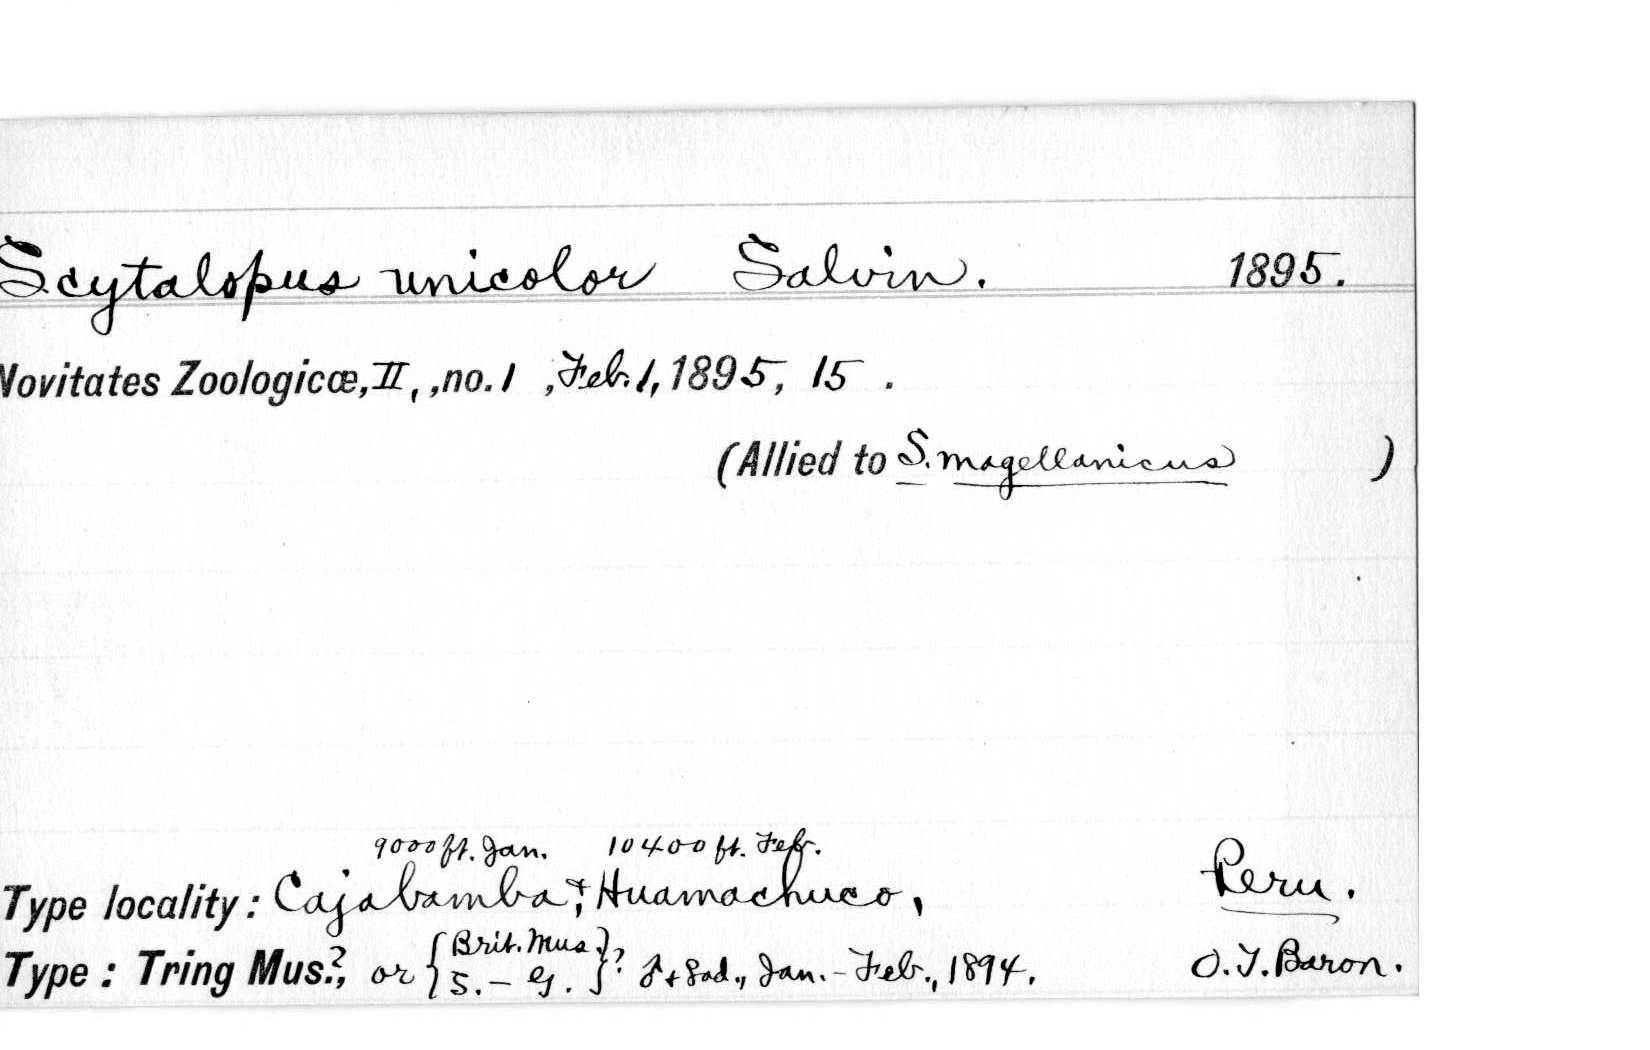 Scytalopus unicolor Salvin. 1895.
Novitates Zoologicæ, II, , no. 1 , Feb. 1, 1895, 15 .
(Allied to S. magellanicus )
9000 ft. Jan. 10400 ft. Feb.
Type locality: Cajabamba, + Huamachuco, Peru.
Type: Tring Mus.?, or {Brit. Mus. S.–G.}? ♂ + ♀ ad., Jan. – Feb., 1894. O. T. Baron.